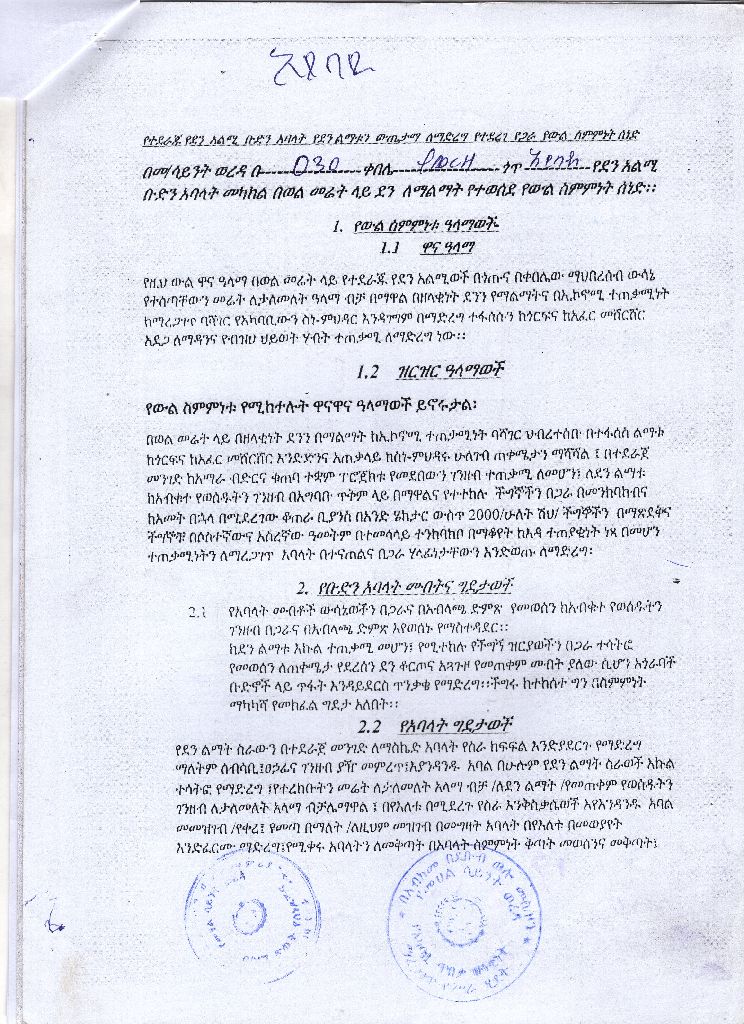 አደባይ
የተደራጁ የደን አልሚ ቡድን አባላት የደን ልማቱን ውጤታማ ለማድረግ የተደረገ የጋራ የውል ስምምነት ሰነድ
በመ/ሳይንት ወረዳ በ 030 ቀበሌ ጎጥ አደባይ የደን አልሚ
ቡድን አባላት መካከል በወል መሬት ላይ ደን ለማልማት የተወሰደ የውል ስምምነት ሰነድ፡፡
1. የውል ስምምነቱ ዓላማወች
1.1 ዋና ዓላማ
የዚህ ውል ዋና ዓላማ በወል መሬት ላይ የተደራጁ የደን አልሚወች በጎጡና በቀበሌው ማህበረሰብ ውሳኔ
የተሰጣቸውን መሬት ለታለመለት ዓላማ ብቻ በማዋል በዘላቂነት ደንን የማልማትና በኢኮኖሚ ተጠቃሚነት
ከማረጋገጥ ባሻገር የአካባቢውን ስነ-ምህዳር እንዳገግም በማድረግ ተፋሰሱን ከጎርፍና ከአፈር መሸርሸር
አደጋ ለማዳንና የብዝሀ ህይወት ሃብት ተጠቃሚ ለማድረግ ነው፡፡
1.2 ዝርዝር ዓላማወች
የውል ስምምነቱ የሚከተሉት ዋናዋና ዓላማወች ይኖሩታል፡
በወል መሬት ላይ በዘላቂነት ደንን በማልማት ከኢኮኖሚ ተጠቃሚነት ባሻገር ህብረተሰቡ በተፋሰስ ልማቱ
ከጎርፍና ከአፈር መሸርሸር እንድድንና አጠቃላይ ከስነ-ምህዳሩ ሁለገብ ጠቀሜታን ማሻሻል ፤ በተደራጀ
መንገድ ከአማራ ብድርና ቁጠባ ተቋም ፕሮጀክቱ የመደበውን ገንዘብ ተጠቃሚ ለመሆን፤ ለደን ልማቱ
ከአብቁተ የወሰዱትን ገንዘብ በአግባቡ ጥቅም ላይ በማዋልና የተተከሉ ችግኞችን በጋራ በመንከባከብና
ከአመት በኋላ በሚደረገው ቆጠራ ቢያንስ በአንድ ሄክታር ውስጥ 2000/ሁለት ሽህ/ ችግኞችን በማጽደቅና
ችግኞቹ በሶስተኛውና አስረኛው ዓመትም በተመሳሳይ ተንከባክቦ በማቆየት ከእዳ ተጠያቂነት ነጻ በመሆን
ተጠቃሚነትን ለማረጋገጥ አባላት በተናጠልና በጋራ ሃላፊነታቸውን እንድወጡ ለማድረግ፡
2. የቡድን አባላት መብትና ግዴታወች
2.1 የአባላት መብቶች ውሳኔወችን በጋራና በአብላጫ ድምጽ የመወሰን ከአብቁተ የወሰዱትን
ገንዘብ በጋራና በአብላጫ ድምጽ እየወሰኑ የማስተዳደር፡፡
ከደን ልማቱ እኩል ተጠቃሚ መሆን፤ የሚተከሉ የችግኝ ዝርያወችን በጋራ ተሳትፎ
የመወሰን ለጠቀሜታ የደረሰን ደን ቆርጦና አጓጉዞ የመጠቀም መብት ያለው ሲሆን አጎራባች
ቡድኖች ላይ ጥፋት እንዳይደርስ ጥንቃቄ የማድረግ፡፡ችግሩ ከተከሰተ ግን በስምምነት
ማካካሻ የመክፈል ግደታ አለበት፡፡
2.2 የአባላት ግዴታወች
የደን ልማት ስራውን በተደራጀ መንገድ ለማስኬድ አባላት የስራ ክፍፍል እንድያደርጉ የማድረግ
ማለትም ሰብሳቢ፤ፀኃፊና ገንዘብ ያዥ መምረጥ፤እያንዳንዱ አባል በሁሉም የደን ልማት ስራወች እኩል
ተሳትፎ የማድረግ ፤የተረከቡትን መሬት ለታለመለት አላማ ብቻ /ለደን ልማት /የመጠቀም የወሰዱትን
ገንዘብ ለታለመለት አላማ ብቻ ፤ በየእለቱ በሚደረጉ የስራ እንቅስቃሴወች እያንዳንዱ አባል
መመዝገብ /የቀረ፤ የመጣ በማለት /ለዚህም መዝገብ በመግዛት አባላት በየእለቱ በመወያየት
እንድፈርሙ ማድረግ፤የሚቀሩ አባላትን ለመቅጣት በአባላት ስምምነት ቅጣት መወሰንና መቅጣት፤